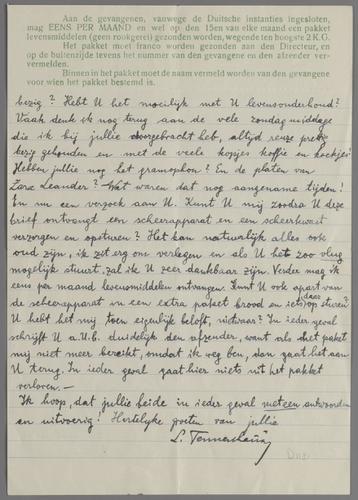 Aan de gevangenen, vanwege de Duitsche instanties ingesloten,
mag EENS PER MAAND en wel op den 15en van elke maand een pakket
levensmiddelen (geen rookgerei) gezonden worden, wegende ten hoogste 2 K.G.
Het pakket moet franco worden gezonden aan den Directeur, en
op de buitenzijde tevens het nummer van den gevangene en den afzender ver-
vermelden.
Binnen in het pakket moet de naam vermeld worden van den gevangene
voor wien het pakket bestemd is.
bezig? Hebt U het moeilijk met U levensonderhoud?
Vaak denk ik nog terug aan de vele zondagmiddage
die ik bij jullie doorgebracht heb, altijd reuze
bezig gehouden en met de veele kopjes koffie en koekjes!
Hebben jullie nog het gramophon? En de platen van
Zara Leander? Wat waren dat nog aangename tijden!
En nu een verzoek aan U. Kunt U mij zoodra U deze
brief ontvangt een scheerapparat en een scheerkwast
verzorgen en opsturen? Het kan natuurlijk alles ook
oud zijn, ik zit erg ons verlegen en als U het zoo vlug
mogelijk stuurt, zal ik U zeer dankbaar zijn. Verder mag ik
eens per maand levensmiddelen ontvangen. Kunt U ook apart van
de scheerapparat in een extra paket brood en iets op sturen?
U hebt het mij toen eigenlijk beloft, nietwaar? In ieder geval
schrijft U a.U.b. duidelijk den afzender, want als het paket
mij niet meer bereikt, omdat ik weg ben, dan gaat het aan
U terug. In ieder geval gaat hier niets uit het pakket
verloren.—
Ik hoop, dat jullie beide in ieder geval meteen antwoorden
en uitvoerig! Hertelijke groeten van jullie
L. Tennenhaus